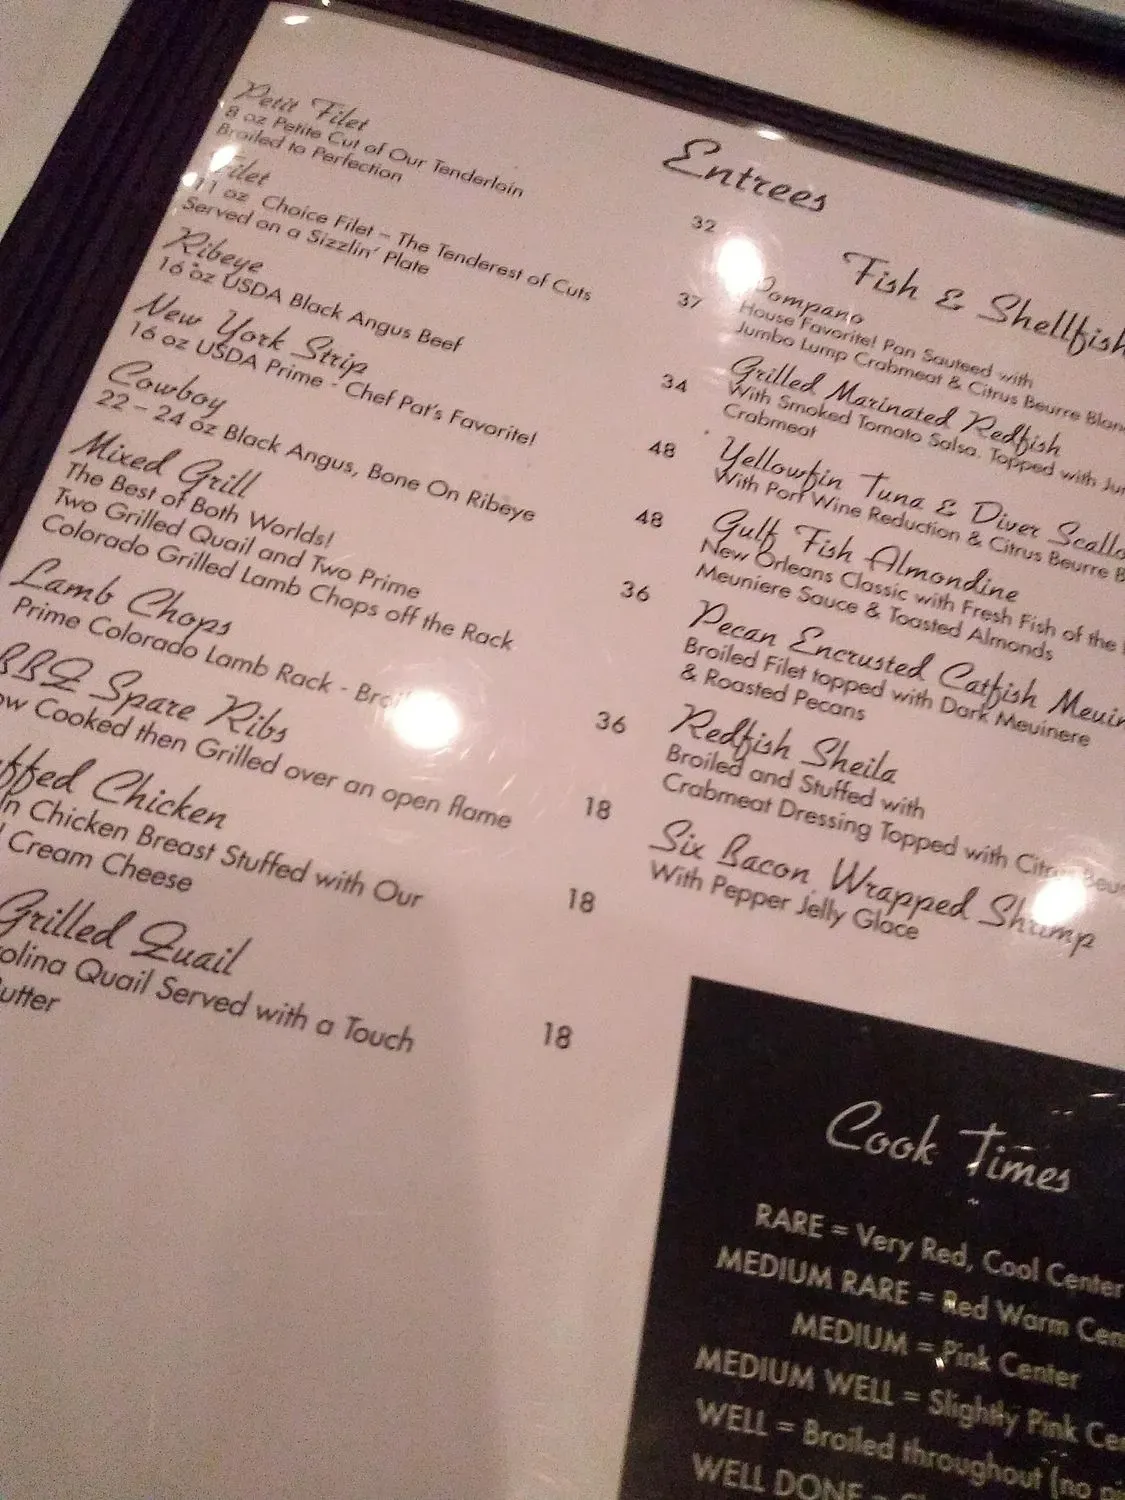 Entrees
Petit Filet
8 oz Petite Cut of Our Tenderloin
Broiled to Perfection
32
Filet
11 oz Choice Filet – The Tenderest of Cuts
Served on a Sizzlin' Plate
37
Ribeye
16 oz USDA Black Angus Beef
34
New York Strip
16 oz USDA Prime - Chef Pat's Favorite!
48
Cowboy
22 – 24 oz Black Angus, Bone On Ribeye
48
Mixed Grill
The Best of Both Worlds!
Two Grilled Quail and Two Prime
Colorado Grilled Lamb Chops off the Rack
36
Lamb Chops
Prime Colorado Lamb Rack -
36
BBQ Spare Ribs
Cooked then Grilled over an open flame
18
Chicken
Chicken Breast Stuffed with Our
Cream Cheese
18
Grilled Quail
Quail Served with a Touch
18
Fish & Shellfish
Pompano
House Favorite! Pan Sauteed with
Jumbo Lump Crabmeat & Citrus Beurre
Grilled Marinated Redfish
With Smoked Tomato Salsa. Topped with
Crabmeat
Yellowfin Tuna & Diver
With Port Wine Reduction & Citrus Beurre
Gulf Fish Almondine
New Orleans Classic with Fresh Fish of the
Meuniere Sauce & Toasted Almonds
Pecan Encrusted Catfish
Broiled Filet topped with Dark Meuinere
& Roasted Pecans
Redfish Sheila
Broiled and Stuffed with
Crabmeat Dressing Topped with
Six Bacon Wrapped Shrimp
With Pepper Jelly Glace
Cook Times
RARE = Very Red, Cool Center
MEDIUM RARE = Red Warm
MEDIUM = Pink Center
MEDIUM WELL = Slightly Pink
WELL = Broiled throughout (no
WELL DONE =